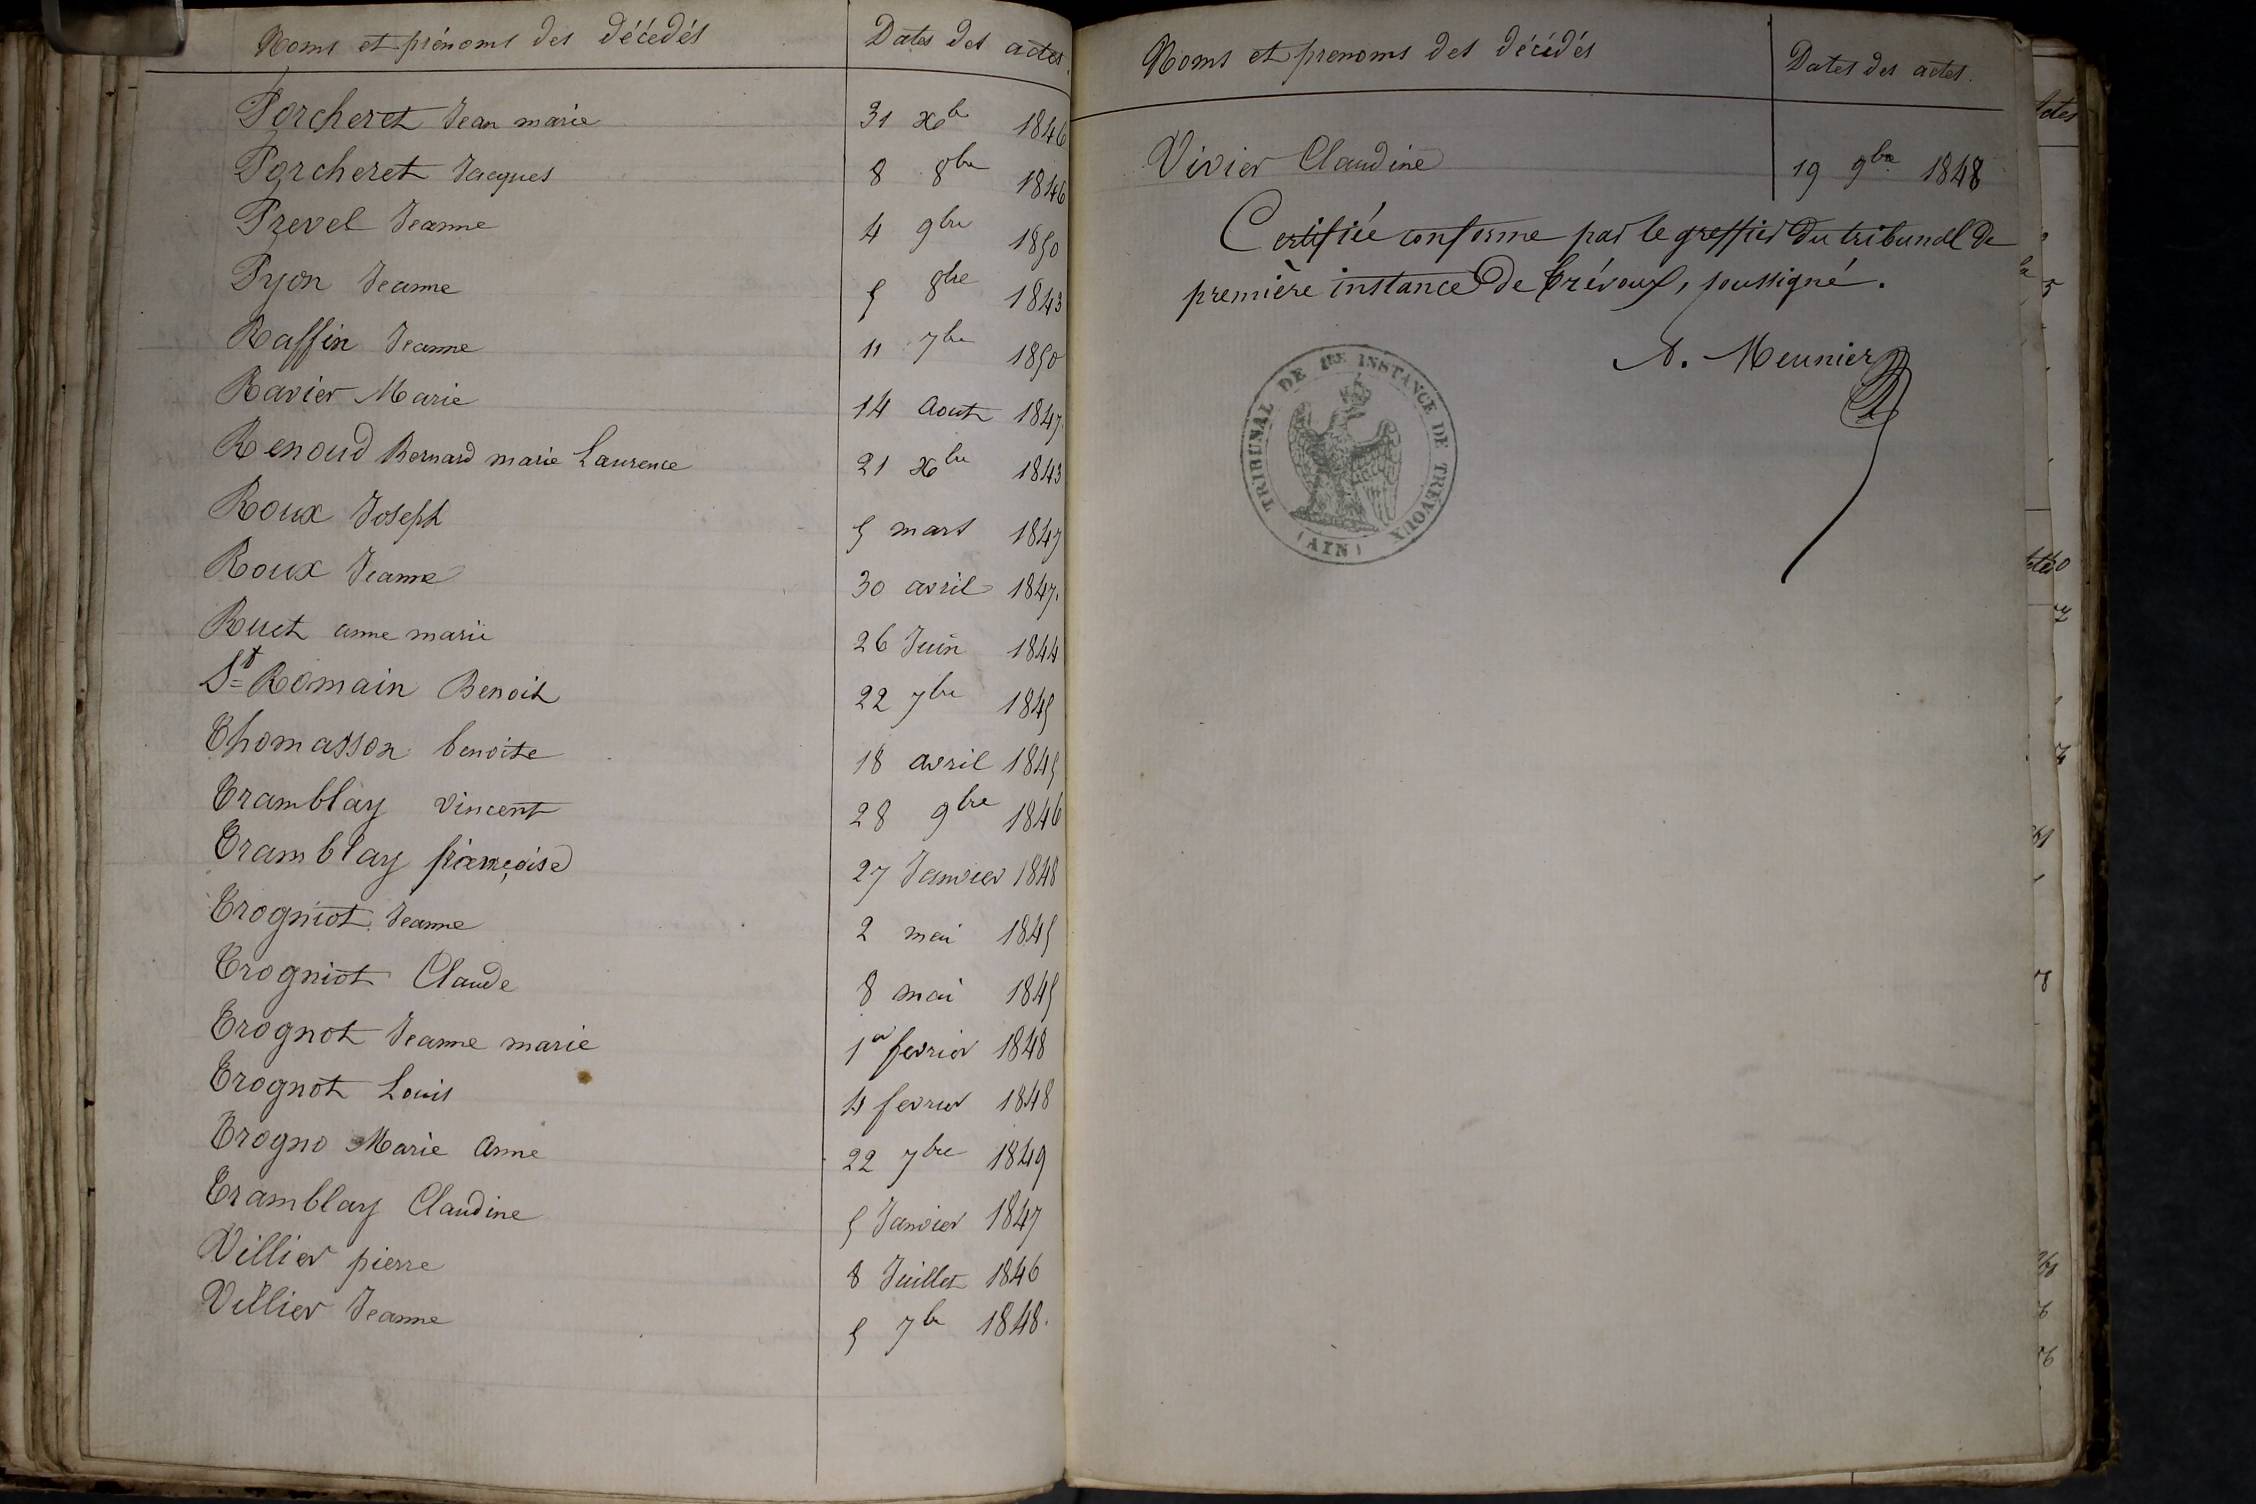 Noms et prénoms des décédés Dates des actes.
Porcheret Jean marie 31 Xbre 1846
Porcheret Jacques 8 8bre 1846
Prevel Jeanne 4 9bre 1850
Pyon Jeanne 5 8bre 1843
Raffin Jeanne 11 7bre 1850
Ravier Marie 14 Aout 1847.
Renoud Bernard marie Laurence 21 Xbre 1843
Roux Joseph 5 mars 1847
Roux Jeanne 30 avril 1847.
Ruet anne marie 26 Juin 1844
St Romain Benoit 22 7bre 1845
Thomasson benoite 18 avril 1845
Tramblay vincent 28 9bre 1846
Tramblay françoise 27 Janvier 1848
Trogniot Jeanne 2 mai 1845
Trogniot Claude 8 mai 1845
Trognot Jeanne marie 1er fevrier 1848
Trognot Louis 4 fevrier 1848
Trogno Marie Anne 22 7bre 1849
Tramblay Claudine 5 Janvier 1847
Villier pierre 8 Juillet 1846
Villier Jeanne 5 7bre 1848.
Noms et prenoms des décédés Dates des actes.
Vivier Claudine 19 9bre 1848
Certifiée conforme par le greffier du tribunal de
première instance de Trévoux, soussigné.
A. Meunier
TRIBUNAL DE 1RE INSTANCE DE TREVOUX
(AIN)